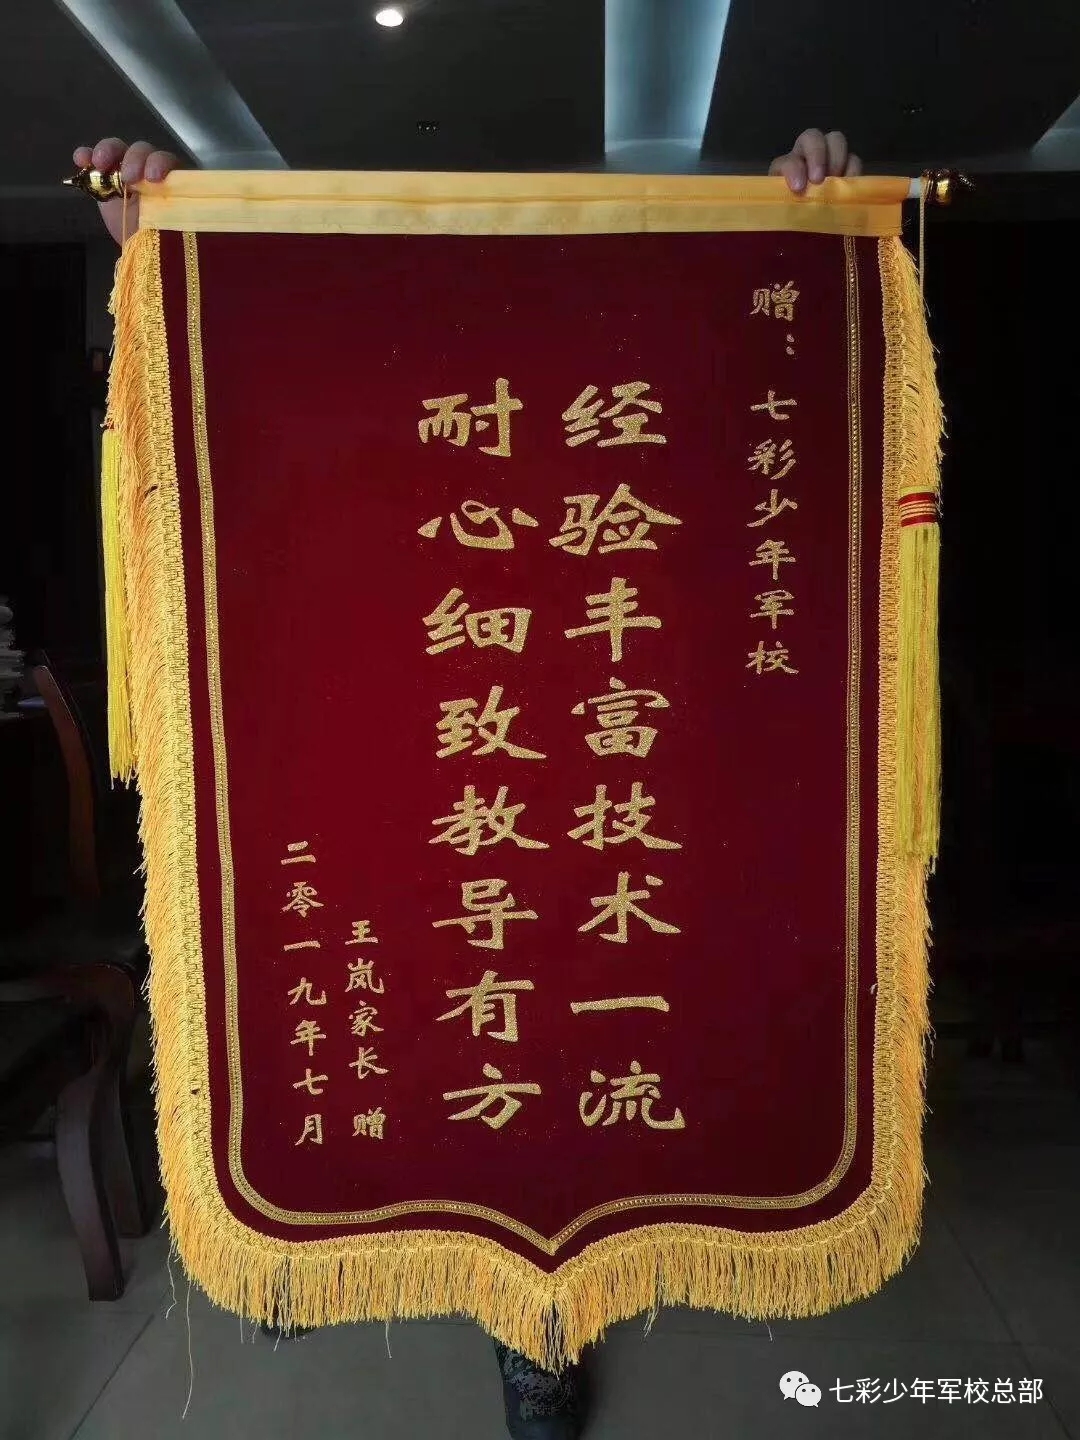 赠：七彩少年军校
经验丰富技术一流
耐心细致教导有方
王岚家长 赠
二零一九年七月
七彩少年军校总部